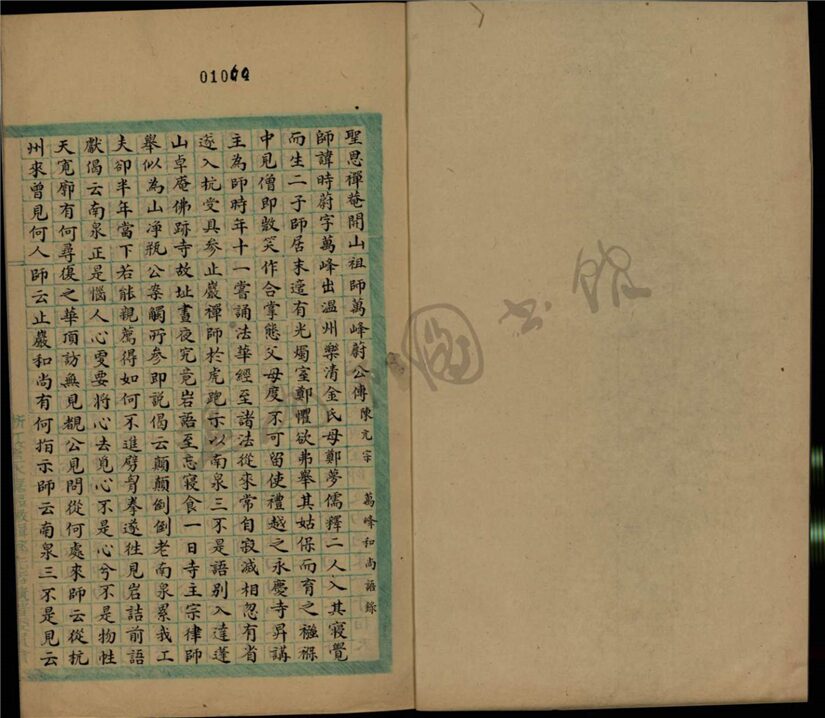 01064
聖恩禪菴開山祖師萬峰蔚公傳 陳元宗 萬峰和尚語錄
師諱時蔚字萬峰出溫州樂清金氏母鄭夢儒釋二人入其寢覺
而生二子師居末迨有光燭室鄭懼欲弗舉其姑保而育之襁褓
中見僧即㪚笑作合掌態父母度不可留使禮越之永慶寺昇講
主為師時年十一嘗誦法華經至諸法從來常自寂滅相忽有省
遂入杭受具參止巖禪師於虎跑示以南泉三不是語別入達蓬
山卓庵佛跡寺故址晝夜究竟岩語至忘寢食一日寺主宗律師
舉似為山淨瓶公案觸所參即說偈云顛顛倒倒老南泉累我工
夫卻半年當下若能親薦得如何不進劈胷拳遂往見岩詰前語
獻偈云南泉正是惱人心要要將心去覓心不是心兮不是物性
天寬廓有何尋復之華頂訪無見覩公見問從何處來師云從杭
州來曾見何人師云止巖和尚有何指示師云南泉三不是見云
圖書館